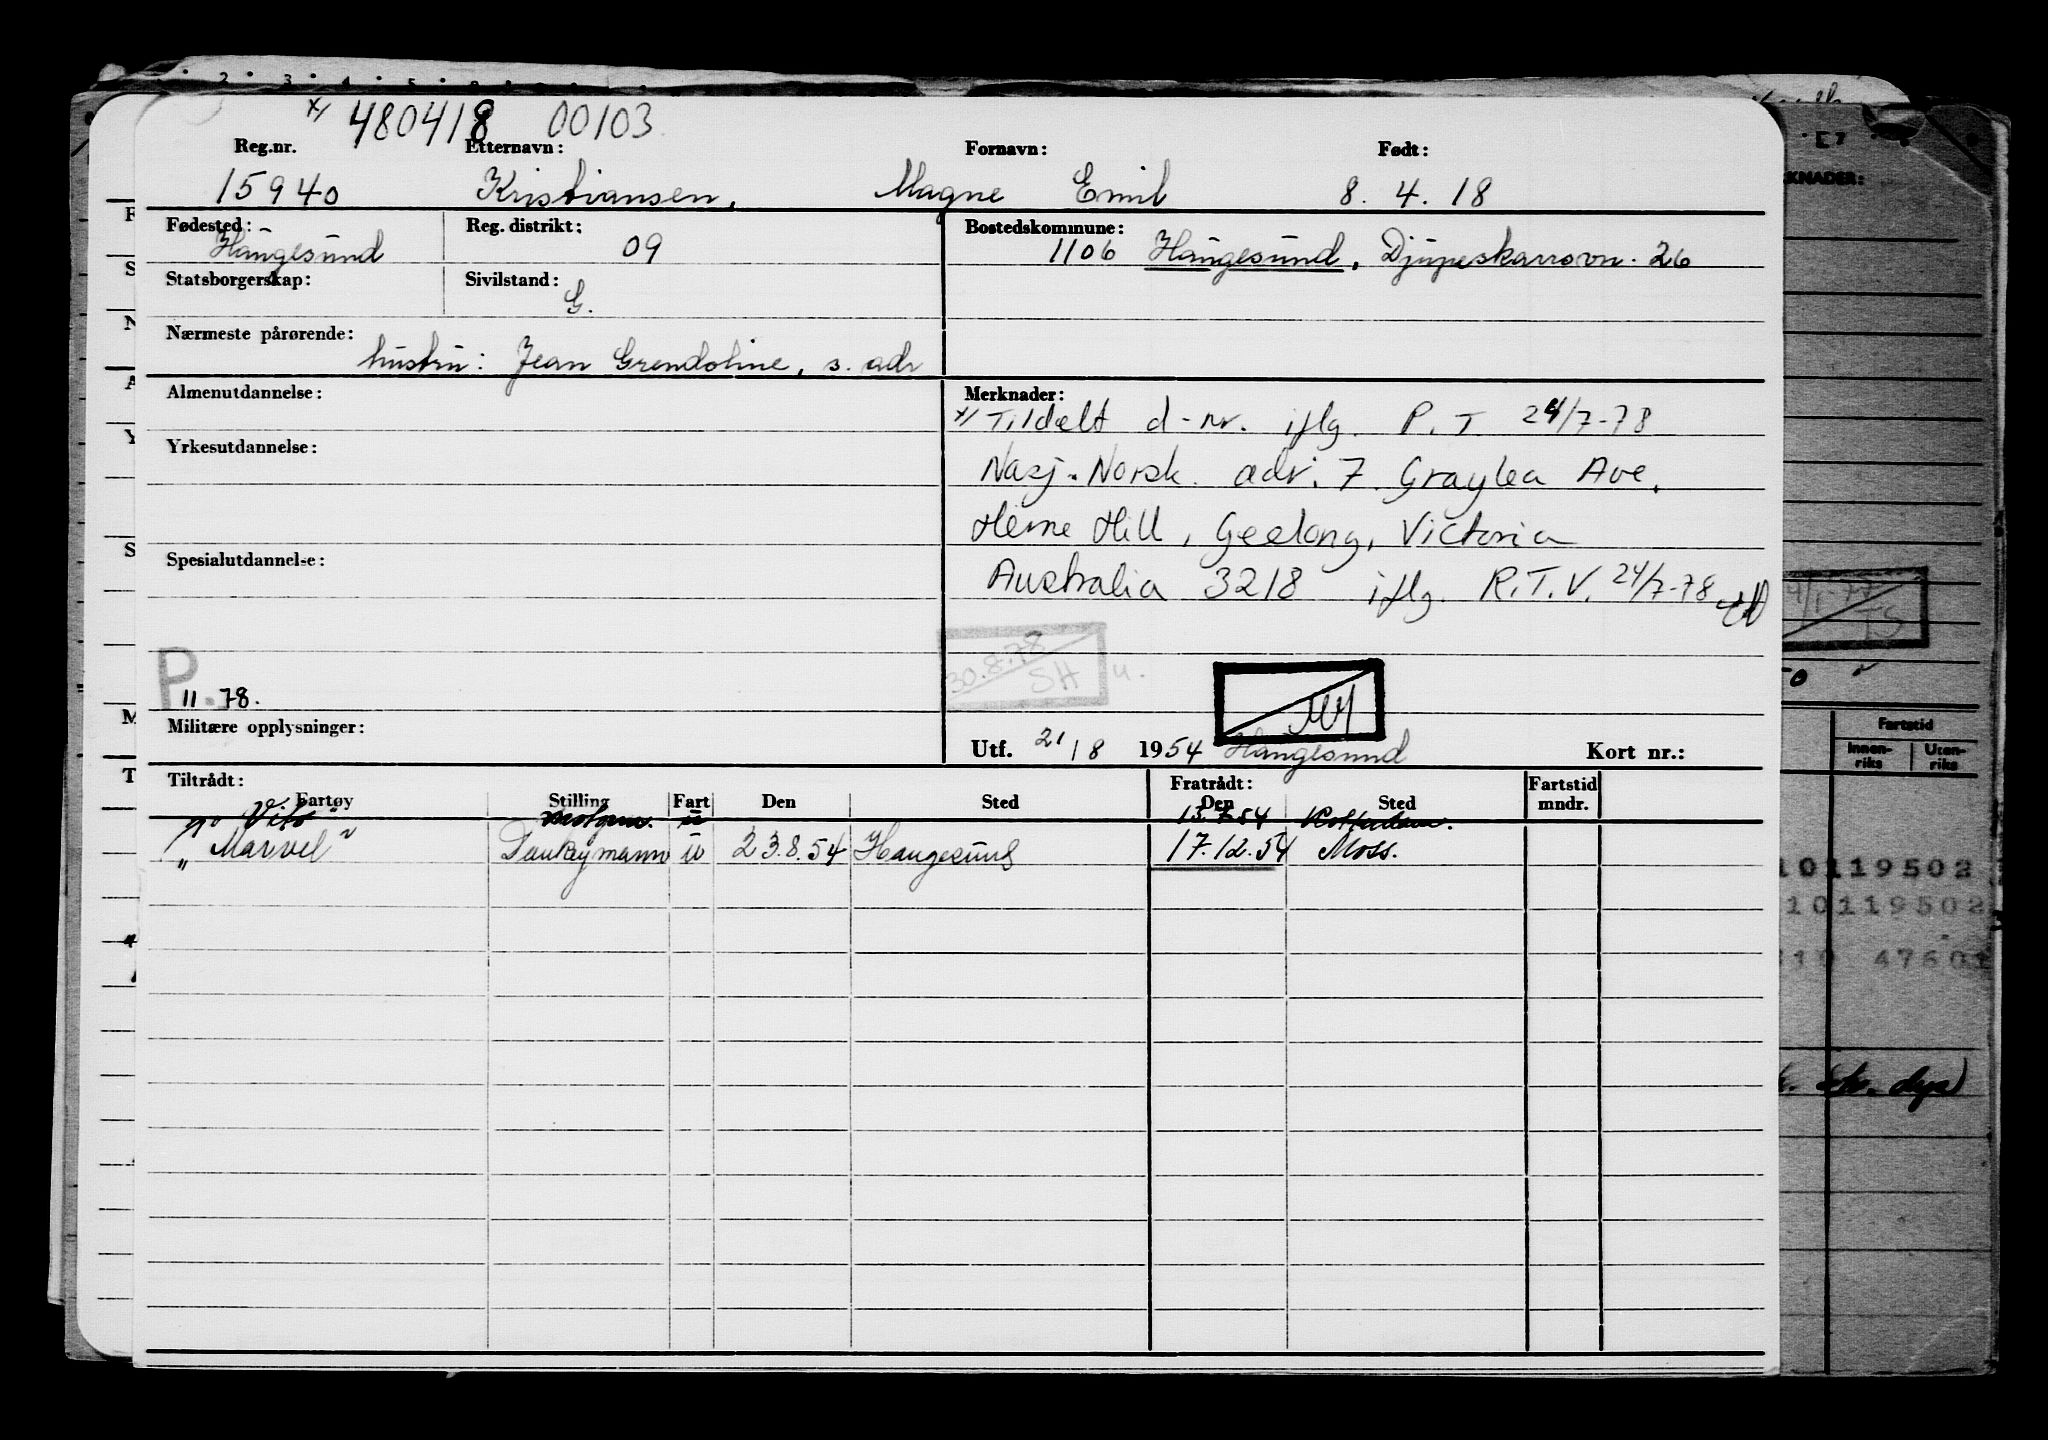 x/ 480418 00103
Reg.nr. Etternavn: Fornavn: Født:
15940 Kristiansen, Magne Emil 8. 4. 18
Fødested: Reg. distrikt: Bostedskommune:
Haugesund 09 1106 Haugesund, Djupeskarsvn. 26
Statsborgerskap: Sivilstand:
G.
Nærmeste pårørende:
hustru: Jean Grendoline, s. adr
Almenutdannelse: Merknader:
x/ Tildelt d-nr. iflg. P.T. 24/7-78
Yrkesutdannelse:
Nasj. Norsk. adr. 7. Graylea Ave.
Herne Hill, Geelong, Victoria
Spesialutdannelse:
Australia 3218 iflg. R.T.V. 24/7-78
30.8.78
SH u.
P.
11 78.
Militære opplysninger:
Utf. 21/8 1954 Haugesund Kort nr.:
Tiltrådt: Fratrådt: Fartstid
Fartøy Stilling Fart Den Sted Den Sted mndr.
"Vito" u 13.7.54
"Marvel" Donkeymann u 23.8.54 Haugesund 17.12.54 Moss.
KNADER:
Fartstid
Innen-
riks Uten-
riks
10119502
10119502
47601